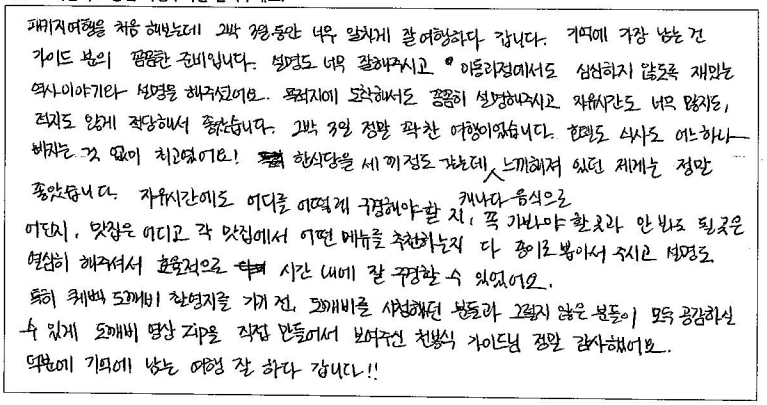 패키지여행을 처음 해보는데 2박 3일동안 너무 알차게 잘 여행하다 갑니다. 기억에 가장 남는 건
가이드 분의 꼼꼼한 준비입니다. 설명도 너무 잘해주시고 이동과정에서도 심심하지 않도록 재밌는
역사이야기와 설명을 해주셨어요. 목적지에 도착해서도 꼼꼼히 설명해주시고 자유시간도 너무 많지도,
적지도 않게 적당해서 좋았습니다. 2박 3일 정말 꽉찬 여행이었습니다. 호텔도 식사도 어느하나
빠지는 것 없이 최고였어요! 한식당을 세 끼 정도 갔는데 캐나다 음식으로 느끼해져 있던 제게는 정말
좋았습니다. 자유시간에도 어디를 어떻게 구경해야 할 지, 꼭 가봐야 할 곳과 안 봐도 될 곳은
어딘지, 맛집은 어디고 각 맛집에서 어떤 메뉴를 추천하는지 다 종이로 뽑아서 주시고 설명도
열심히 해주셔서 효율적으로 시간 내에 잘 구경할 수 있었어요.
특히 퀘벡 도깨비 촬영지를 가기 전, 도깨비를 시청했던 분들과 그렇지 않은 분들이 모두 공감하실
수 있게 도깨비 영상 zip을 직접 만들어서 보여주신 천봉식 가이드님 정말 감사했어요.
덕분에 기억에 남는 여행 잘 하다 갑니다!!